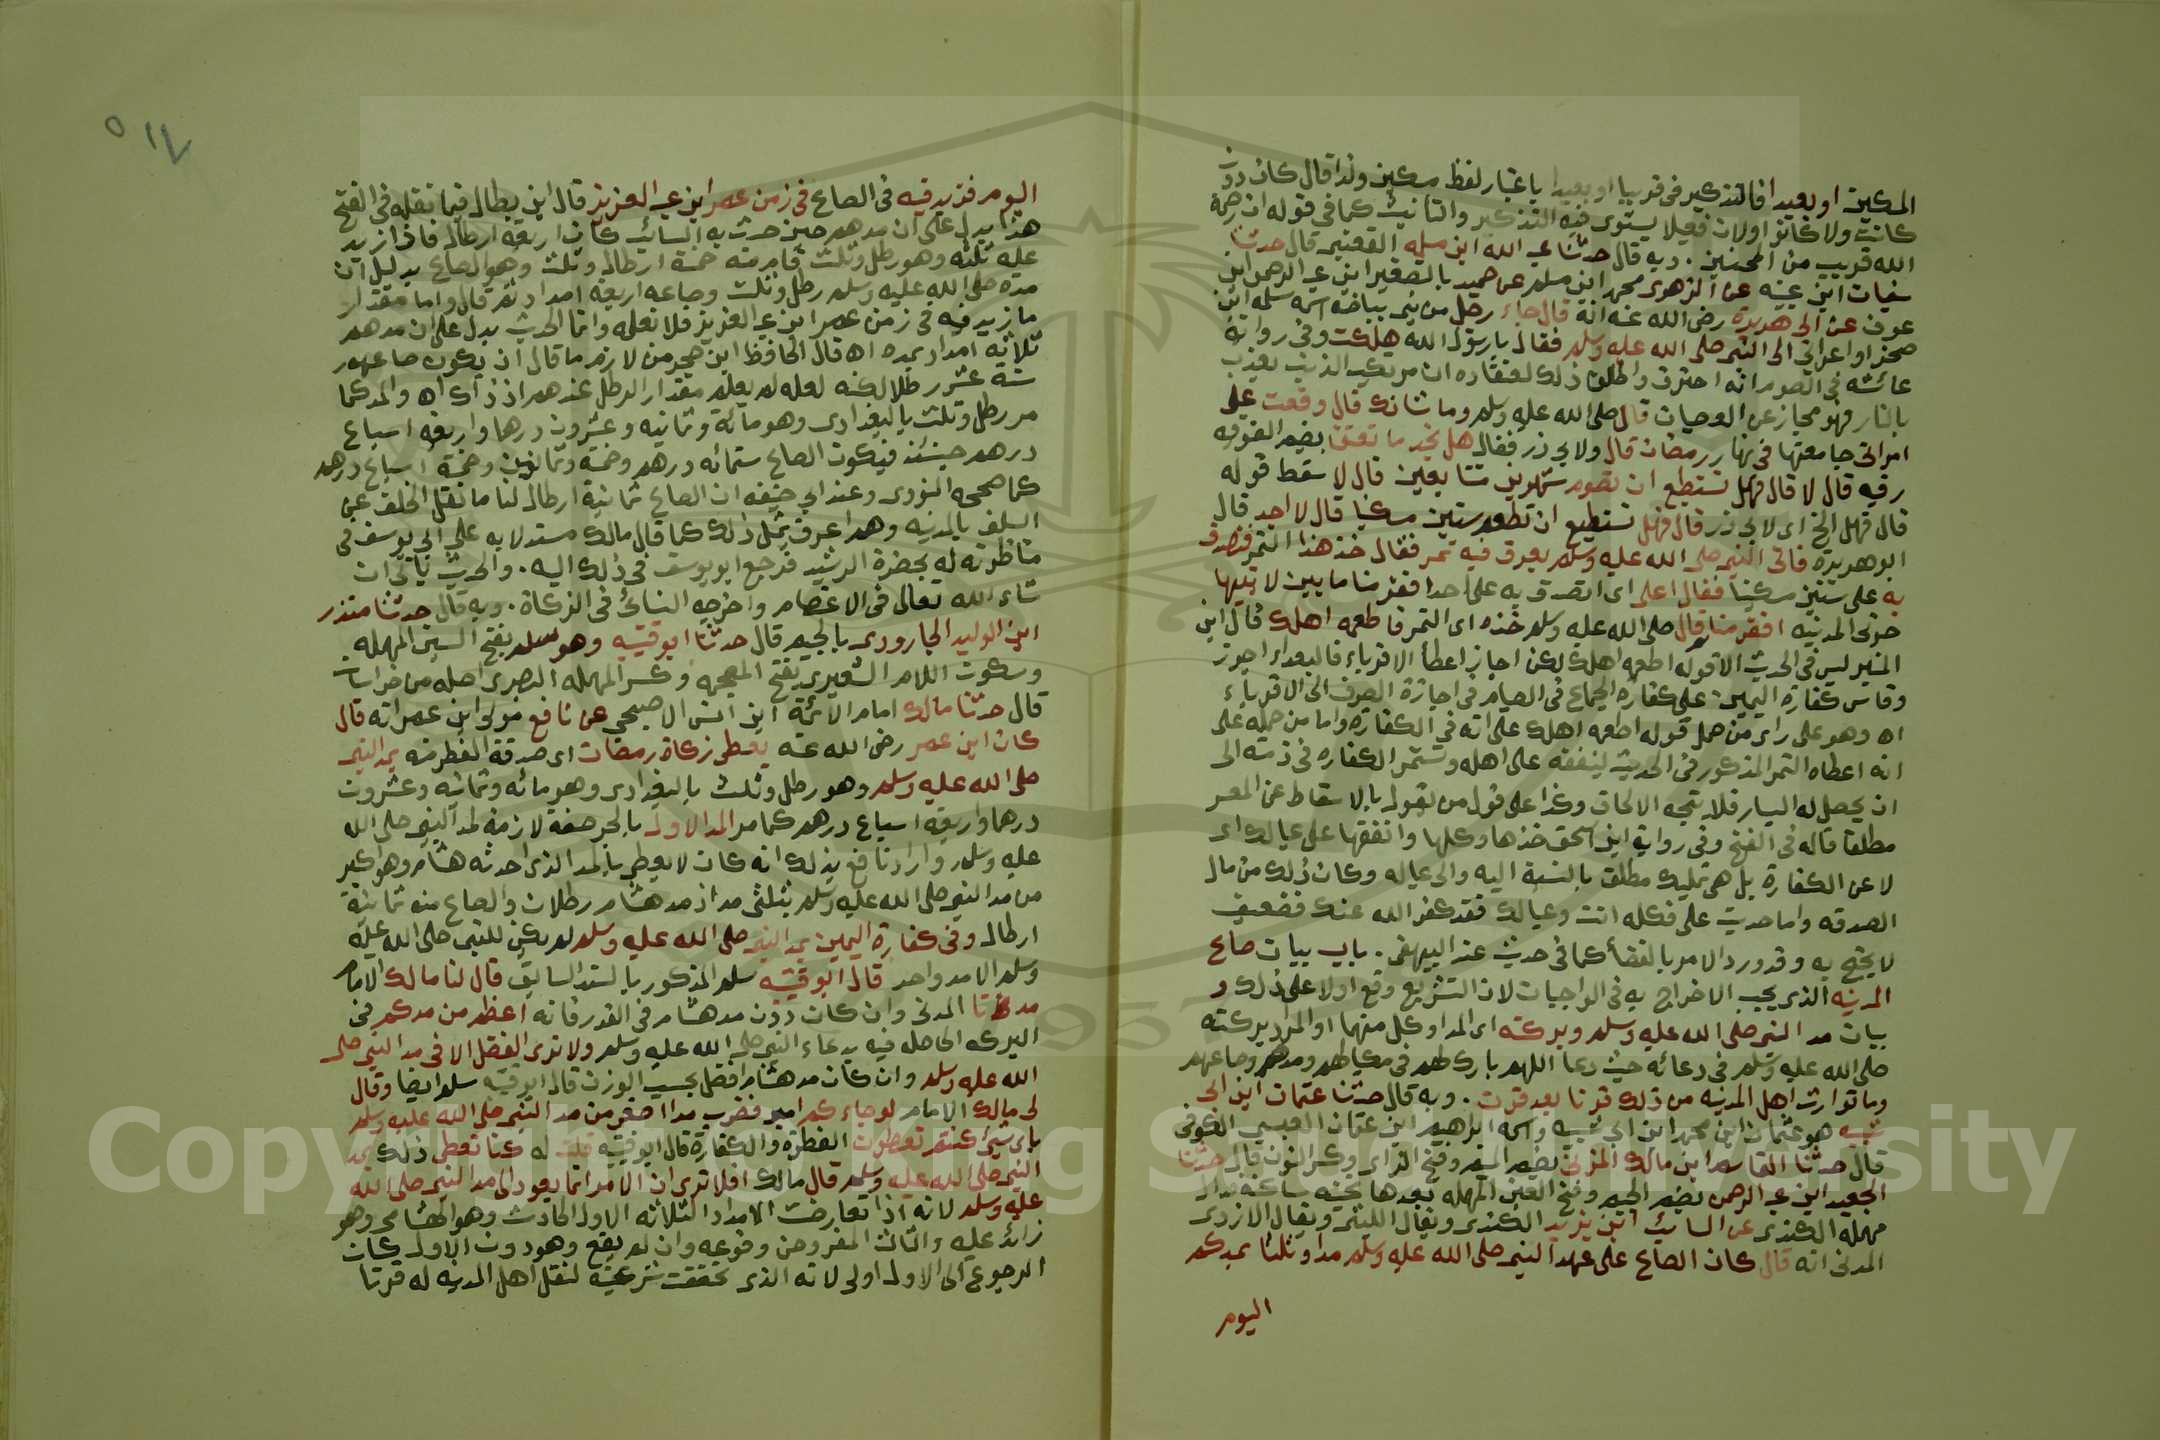 المسكين او بعيدا فالتذكير فى قريبا او بعيدا باعتبار لفظ مسكين ولذا قال كان دون
كانت ولا كانوا اولان فعيلا يستوى فيه التذكير والتانيث كما فى قوله ان رحمة
الله قريب من المحسنين. وبه قال حدثنا عبد الله ابن مسلمه القعنبى قال حدثنا
سفيان ابن عيينه عن الزهرى محمد ابن مسلم عن حميد بالتصغير ابن عبد الرحمن ابن
عوف عن ابى هريرة رضى الله عنه انه قال جاء رجل من بنى بياضه اسمه سلمه ابن
صخر او اعرابى الى النبى صلى الله عليه وسلم فقال يا رسول الله هلكت وفى رواية
عائشه فى الصوم انه احترق واطلق ذلك لاعتقاده ان مرتكب الذنب يعذب
بالنار فهو مجاز عن العصيان قال صلى الله عليه وسلم وما شانك قال وقعت على
امراتى جامعتها فى نهار رمضان قال ولابى ذر فقال هل تجد ما تعتق بضم الفوقيه
رقبه قال لا قال فهل تستطيع ان تصوم شهرين متتابعين قال لا سقط قوله
قال فهل الخ اى لابى ذر قال فهل تستطيع ان تطعم ستين مسكينا قال لا اجد قال
ابو هريرة فاتى النبى صلى الله عليه وسلم بعرق فيه تمر فقال خذ هذا التمر فتصدق
به على ستين مسكينا فقال اعلى اى اتصدق به على احد افقر منا ما بين لابتيها
حرتى المدينه افقر منا قال صلى الله عليه وسلم خذه اى التمر فاطعمه اهلك قال ابن
المنير ليس فى الحديث الا قوله اطعمه اهلك لكن اجاز اعطأ الاقرباء فالبعداء اجوز
وقاس كفارة اليمين على كفارة الجماع فى الصيام فى اجازة الصرف الى الاقرباء
اه وهو على راى من حمل قوله اطعمه اهلك على انه فى الكفارة واما من حمله على
انه اعطاه التمر المذكور فى الحديث لينفقه على اهله وتستمر الكفاره فى ذمته الى
ان يحصل له اليسار فلا يتجه الالحاق وكذا على قول من يقول بالاسقاط عن المعسر
مطلقا قاله فى الفتح وفى رواية ابن اسحق خذها وكلها وانفقها على عيالك اى
لا عن الكفارة بل هى تمليك مطلق بالنسبة اليه والى عياله وكان ذلك من مال
الصدقه واما حديث على فكله انت وعيالك فقد كفر الله عنك فضعيف
لا يحتج به وقد ورد الامر بالقضأ كما فى حديث عند البيهقى. باب بيان صاع
المدينه الذى يجب الاخراج به فى الواجبات لان التشريع وقع اولا على ذلك و
بيان مد النبى صلى الله عليه وسلم وبركته اى المد او كل منها او المراد بركته
صلى الله عليه وسلم فى دعائه حيث دعا اللهم بارك لهم فى مكيالهم ومدهم وصاعهم
وما توارث اهل المدينه من ذلك قرنا بعد قرن. وبه قال حدثنا عثمان ابن ابى
شيبه هو عثمان ابن محمد ابن ابى شيبه واسمه ابراهيم ابن عثمان العبسى الكوفى
قال حدثنا القاسم ابن مالك المزنى بضم الميم وفتح الزاى وكسر النون قال حدثنا
الجعيد ابن عبد الرحمن بضم الجيم وفتح العين المهمله بعدها تحتيه ساكنه فدال
مهمله الكندى عن السائب ابن يزيد الكندى ويقال الليثى ويقال الازدى
المدنى انه قال كان الصاع على عهد النبى صلى الله عليه وسلم مدا وثلثا بمدكم
اليوم
٥١٧
اليوم فزيد فيه فى الصاع فى زمن عمر ابن عبد العزيز قال ابن بطال فيما نقله فى الفتح
هذا يدل على ان مدهم حين حدث به السائب كان اربعة ارطال فاذا زيد
عليه ثلثه وهو رطل وثلث قام منه خمسة ارطال وثلث وهو الصاع بدليل ان
مده صلى الله عليه وسلم رطل وثلث وصاعه اربعة امداد ثم قال واما مقدار
ما زيد فيه فى زمن عمر ابن عبد العزيز فلا نعلمه وانما الحديث يدل على ان مدهم
ثلاثة امداد بمده اه قال الحافظ ابن حجر من لازم ما قال ان يكون صاعهم
ستة عشر رطلا لكنه لعله لم يعلم مقدار الرطل عندهم اذ ذاك اه والمد كما
مر رطل وثلث بالبغدادى وهو مائة وثمانيه وعشرون درهما واربعه اسباع
درهم حينئذ فيكون الصاع ستمائه درهم وخمسة وثمانون وخمسة اسباع درهم
كما صححه النووى وعند ابى حنيفه ان الصاع ثمانية ارطال لنا ما نقل الخلف عن
السلف بالمدينه وهم اعرف بمثل ذلك كما قال مالك مستدلا به على ابى يوسف فى
مناظرته له بحضرة الرشيد فرجع ابو يوسف فى ذلك اليه. والحديث ياتى ان
شاء الله تعالى فى الاعتصام واخرجه النسائ فى الزكاة. وبه قال حدثنا منذر
ابن الوليد الجارودى بالجيم قال حدثنا ابو قتيبه وهو سلم بفتح السين المهمله
وسكون اللام الشعيرى بفتح المعجمه وكسر المهمله البصرى اصله من خراسان
قال حدثنا مالك امام الائمة ابن انس الاصبحى عن نافع مولى ابن عمر انه قال
كان ابن عمر رضى الله عنه يعطى زكاة رمضان اى صدقة الفطر منه بمد النبى
صلى الله عليه وسلم وهو رطل وثلث بالبغدادى وهو مائه وثمانيه وعشرون
درهما واربعة اسباع درهم كما مر المد الاول بالجر صفه لازمة لمد النبى صلى الله
عليه وسلم واراد نافع بذلك انه كان لا يعطى بالمد الذى احدثه هشام وهو اكبر
من مد النبى صلى الله عليه وسلم بثلثى مد اذ مد هشام رطلان والصاع منه ثمانية
ارطال وفى كفارة اليمين بمد النبى صلى الله عليه وسلم لم يكن للنبى صلى الله عليه
وسلم الا مد واحد قال ابو قتيبه سلم المذكور بالسند السابق قال لنا مالك الامام
مدنا المدنى وان كان دون مد هشام فى القدر فانه اعظم من مدكم فى
البركه الحاصله فيه بدعاء النبى صلى الله عليه وسلم ولا نرى الفضل الا فى مد النبى صلى
الله عليه وسلم وان كان مد هشام افضل بحسب الوزن قال ابو قتيبه سلم ايضا وقال
لى مالك الامام لو جاءكم امير فضرب مدا اصغر من مد النبى صلى الله عليه وسلم
باى شيئ كنتم تعطون الفطرة والكفارة قال ابو قتيبه قلت له كنا نعطى ذلك بمد
النبى صلى الله عليه وسلم قال مالك افلا ترى ان الامر انما يعود الى مد النبى صلى الله
عليه وسلم لانه اذا تعارضت الامداد الثلاثه الاول الحادث وهو الهشامى وهو
زائد عليه والثالث المفروض وقوعه وان لم يقع وهو دون الاول كان
الرجوع الى الاول اولى لانه الذى تحققت شرعيته لنقل اهل المدينه له قرنا
Copyright © King Saud University
1957